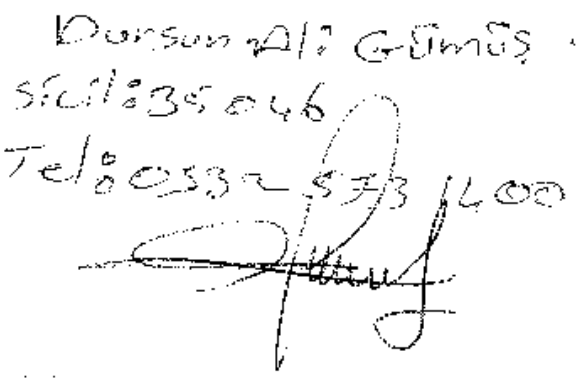 Dursun Ali Gümüş
Sicil: 35046
Tel: 0532 573